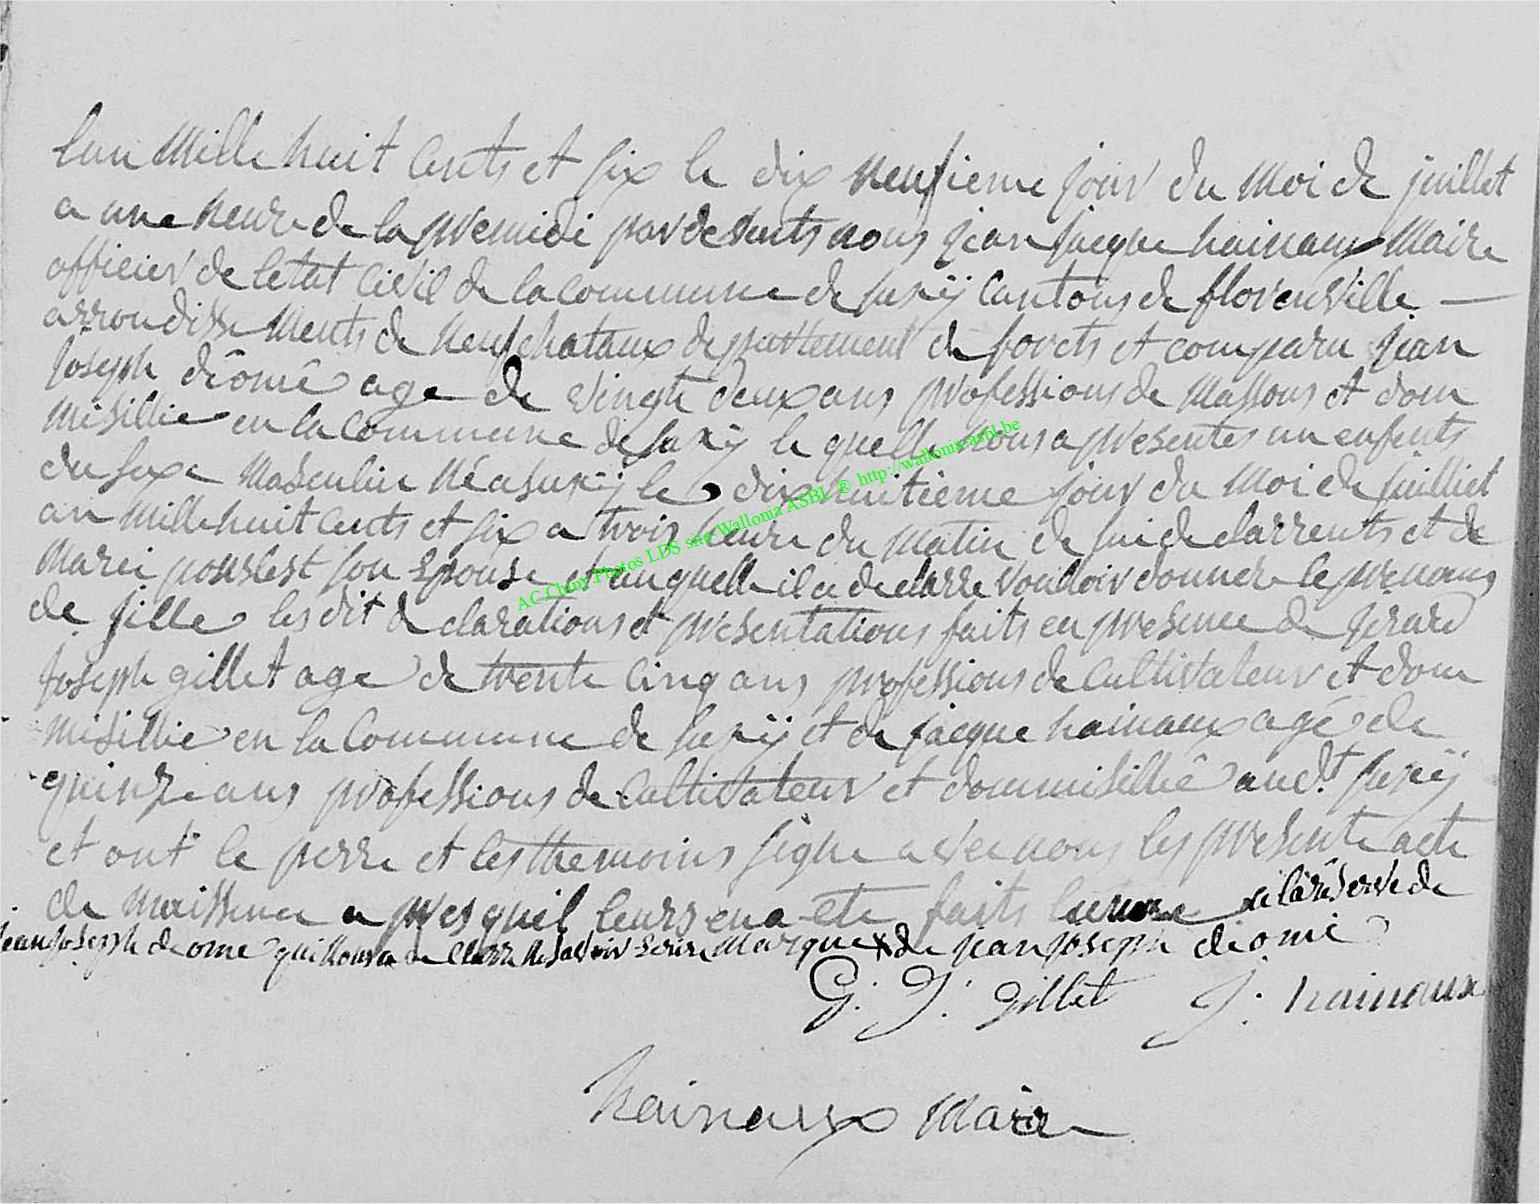 lan mille huit cents et six le dix neufieme jour du moi de juillet
a une heure de la premidi pardevents nous jean jacque hainaux maire
officier de letat civil de la commune de suxÿ cantons de florenville
arrondissements de neufchataux departtement de forets et comparu jean
joseph diomé age de vingt deux ans professions de massons et dom
misillie en la commune de suxÿ le quelle nous a presentes un enfents
du sexe masculin né a suxÿ le dix huitieme jour du moi de juilliet
an mille huit cents et six a trois heure du matin de lui declarrents et de
marei son epouse et au quelle il a declarre vouloir donner le prenoms
de jille les dit declarations et presentations faits en presence de gerard
joseph gillet age de trente cinq ans professions de cultivateur et dom
misillie en la commune de suxÿ et de jacque hainaux agé de
quinze ans professions de cultivateur et dommisillié aud.t suxÿ
et ont le perre et les themoins signe avec nous les presente acte
de naissence a pres quil leurs en a ete faits a la réserve de
jean joseph diome qui nous a declarre ne savoir ecrire marque x de jean joseph diomé
G: J: gillet J: hainaux
hainaux maire
AC Chiny Photos LDS site Wallonia ASBL @ http://wallonia-asbl.be